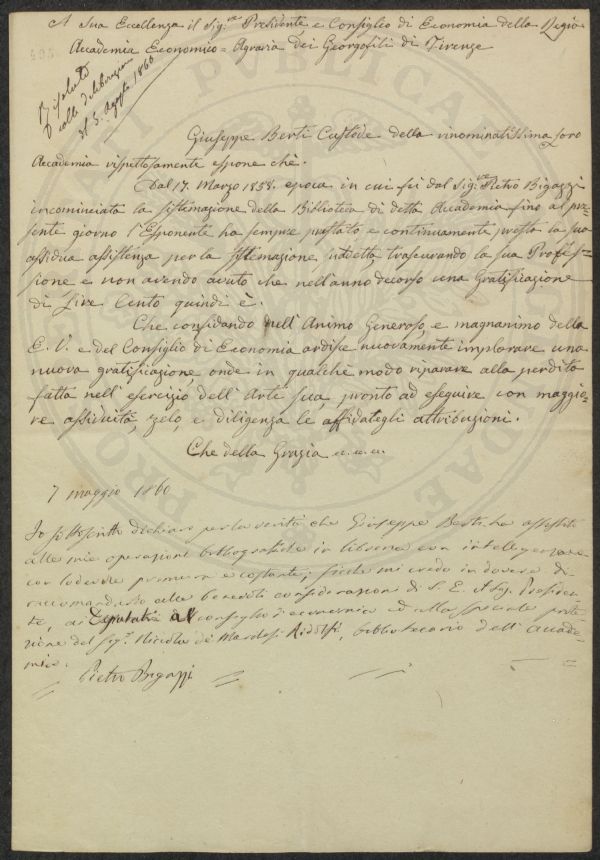 A Sua Eccellenza il Sig.re Presidente e Consiglio di Economia della Regia
Accademia Economico=Agraria dei Georgofili di Firenze
Risoluto
colla deliberazione
del 5. Agosto 1860
Giuseppe Berti Custode della rinominatissima loro
Accademia rispettosamente espone che.
Dal 17. Marzo 1858. epoca in cui fù dal Sig.re Pietro Bigazzi
incominciata la sistemazione della Biblioteca di detta Accademia fino al pre-
sente giorno l'Esponente ha sempre prestato e continuamente presta la sua
assidua assistenza per la sistemazione suddetta trascurando la sua Profes=
sione e non avendo avuto che nell'anno decorso una Gratificazione
di Lire Cento quindi è.
Che confidando nell'Animo Generoso, e magnanimo della
E. V. e del Consiglio di Economia ardisce nuovamente implorare una
nuova gratificazione, onde in qualche modo riparare alla perdita
fatta nell'esercizio dell'Arte sua, pronto ad eseguire con maggio-
re assiduità, zelo, e diligenza le affidategli attribuzioni.
Che della Grazia e.c.c.
7 maggio 1860
Io sottoscritto dichiaro per la verità che Giuseppe Berti ha assistito
alle mie operazioni in libreria con intelligenza e
con lodevole premura e costante; sicchè mi credo in dovere di
raccomandarlo alle benevoli considerazioni di S. E. il Sig. Presiden-
te, ai Deputati al consiglio d'economia ed alla speciale prote-
zione del Sig.r Niccolò de' Marchesi Ridolfi, bibliotecario dell'Accade-
mia.
Pietro Bigazzi